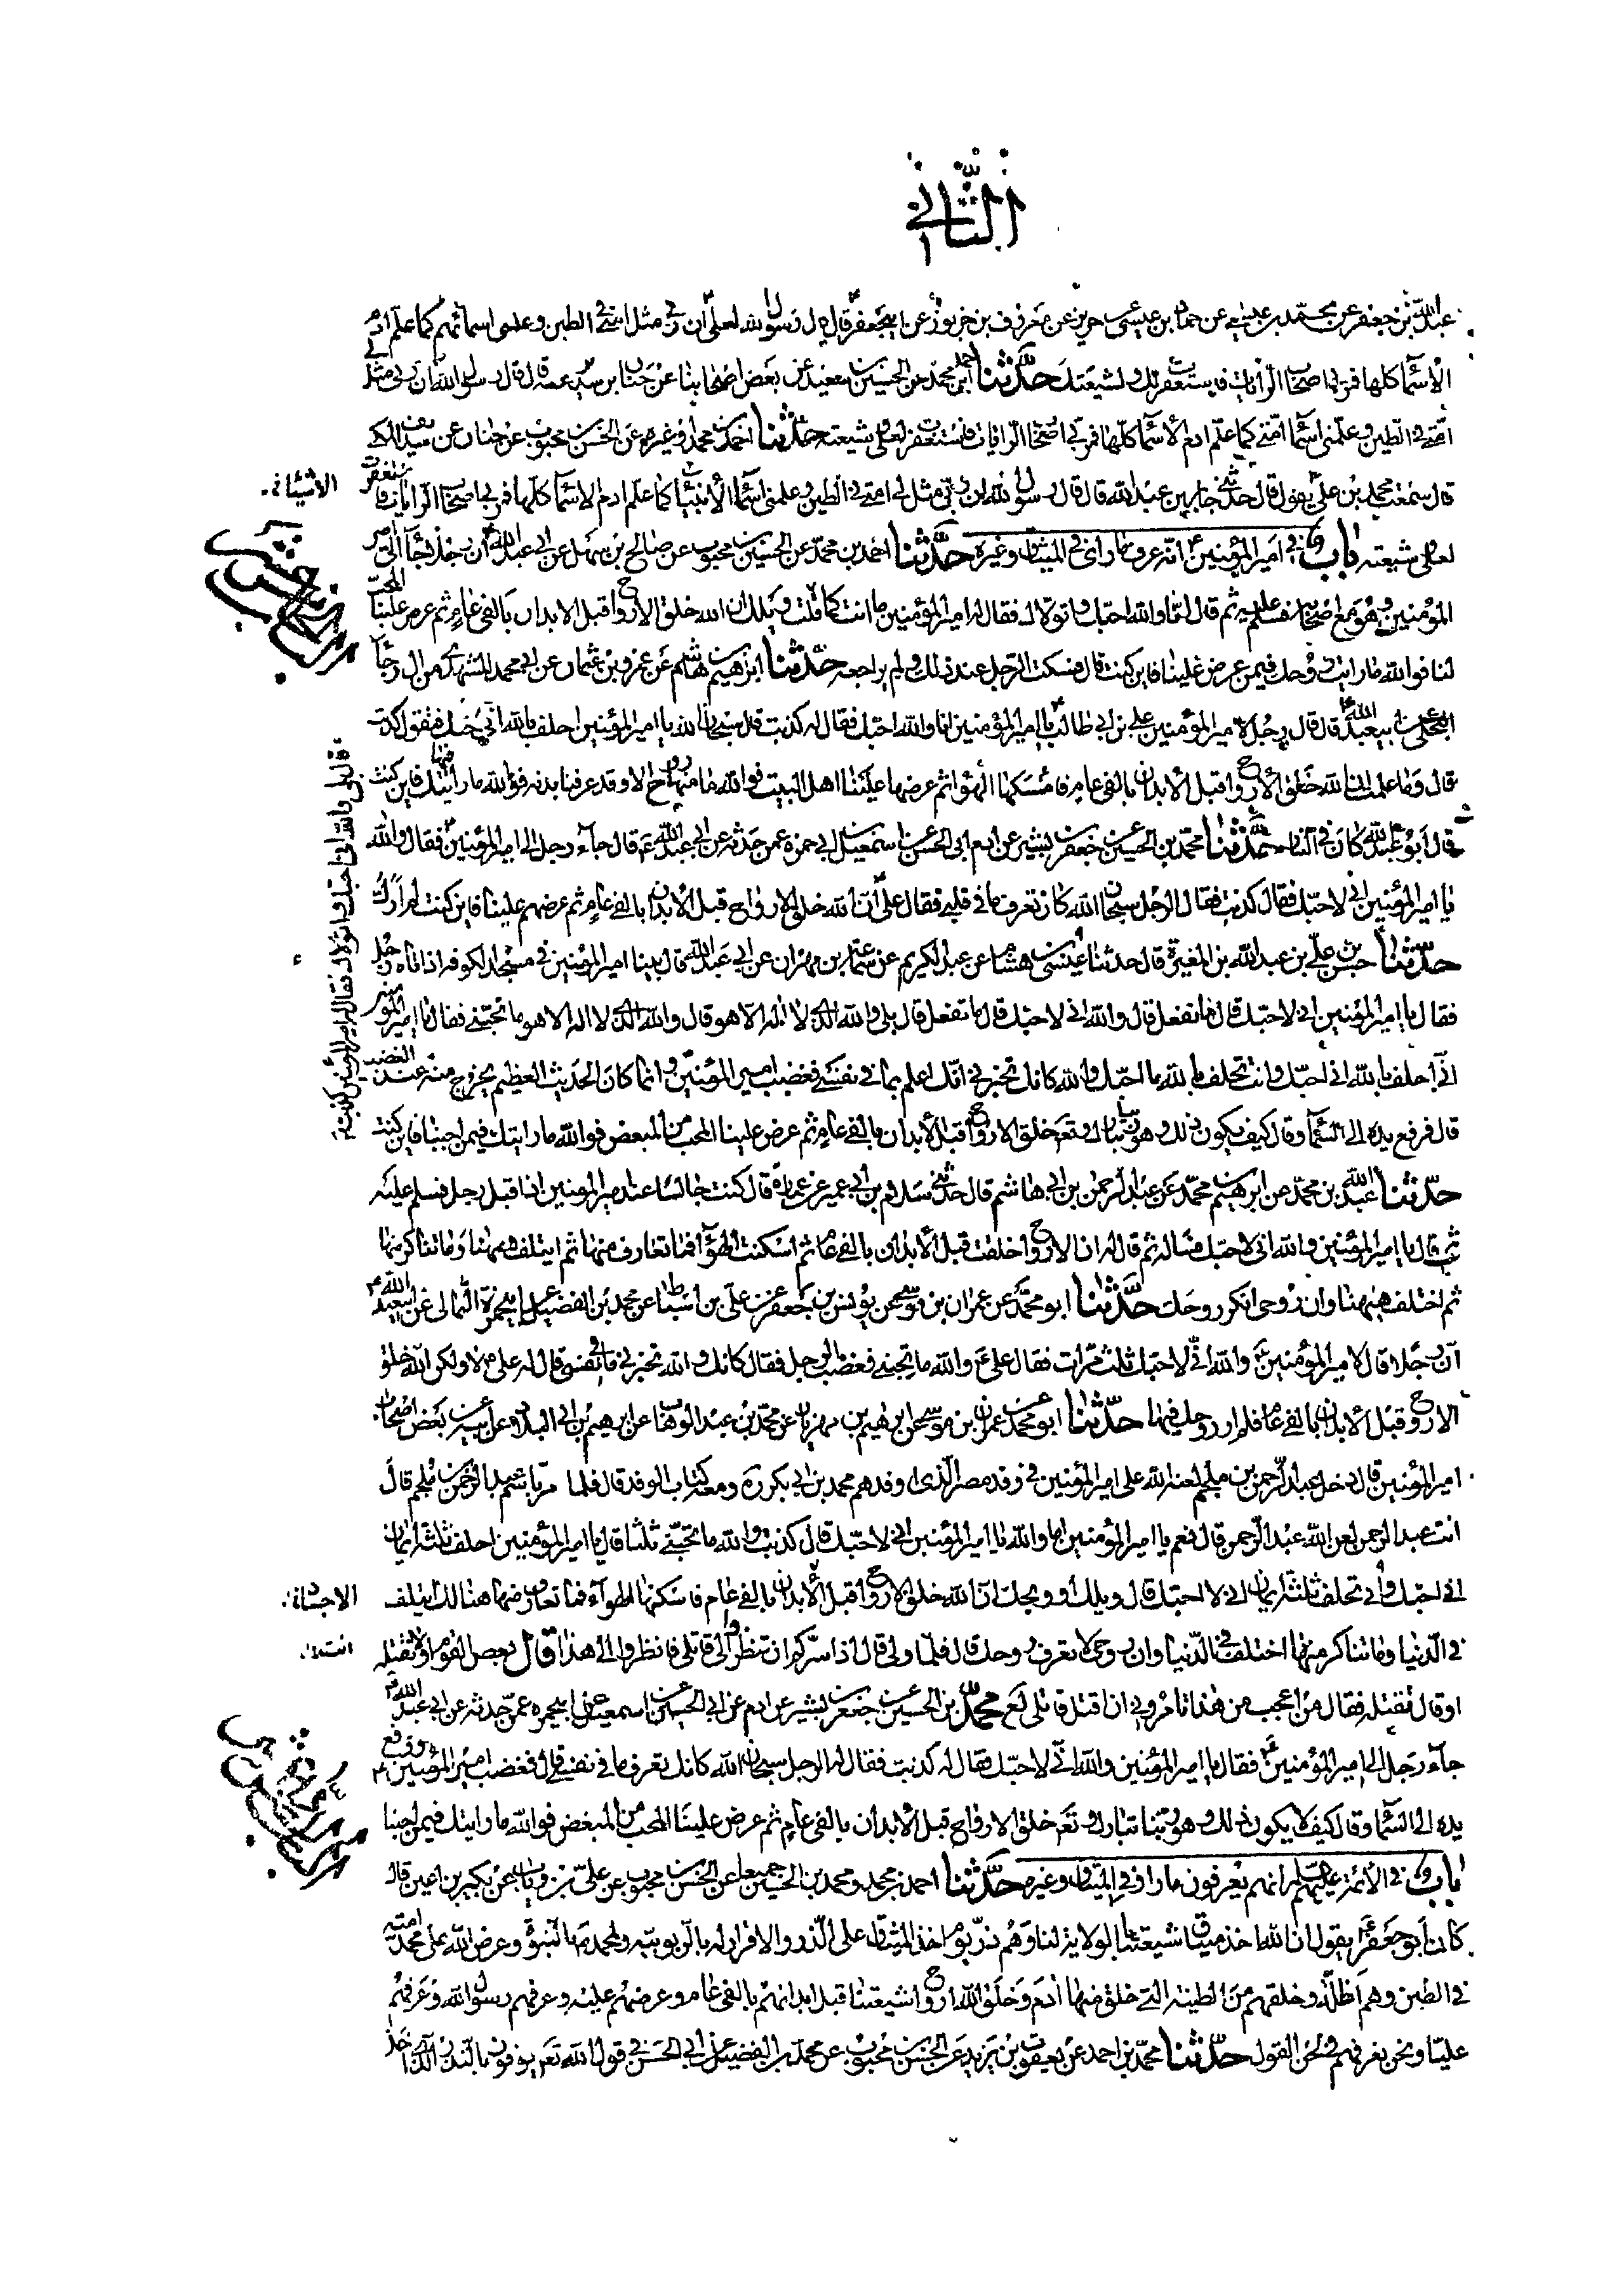 الثاني
عبد الله بن جعفر عن محمد بن عيسى عن حماد بن عيسى عن حريز عن معروف بن خربوز عن ابيجعفر قال قال رسول الله لعلى ان ربى مثل امتى فى الطين وعلمنى اسمائهم كما علم ادم
الاسما كلها فمر بى اصحاب الرايات فاستغفرت لك ولشيعتك حدثنا احمد بن محمد عن الحسين بن سعيد عن بعض اصحابنا عن حنان بن سدير عمه قال قال رسول الله ان ربى مثل لى
امتى فى الطين وعلمنى اسما امتى كما علم ادم الاسما كلها فمر بى اصحاب الرايات فاستغفرت لعلى وشيعته حدثنا احمد بن محمد او غيره عن الحسن بن محبوب عن حنان عن سديف المكى
قال سمعت محمد بن على يقول قال حدثنى جابر بن عبد الله قال قال رسول الله ان ربى مثل لى امتى فى الطين وعلمنى اسما الانبيا كما علم ادم الاسما كلها فمر بى اصحاب الرايات فاستغفرت
لعلى وشيعته باب فى امير المؤمنين انه عرف ما راى فى الميثاق وغيره حدثنا احمد بن محمد عن الحسن بن محبوب عن صالح بن سهل عن ابى عبد الله ان رجلا جآ الى امير
المؤمنين وهو مع اصحابه فسلم عليه ثم قال انا والله احبك واتولاك فقال له امير المؤمنين ما انت كما قلت ويلك ان الله خلق الارواح قبل الابدان بالفى عام ثم عرض علينا المحب
لنا فوالله ما رايت روحك فيمن عرض علينا فاين كنت قال فسكت الرجل عند ذلك ولم يراجعه حدثنا ابرهيم بن هاشم عن عمرو بن عثمان عن ابى محمد المشهدى من ال رجآ
البجلى عن ابيعبد الله قال قال رجل لامير المؤمنين على بن ابى طالب يا امير المؤمنين انا والله احبك فقال له كذبت قال سبحان الله يا امير المؤمنين احلف بالله انى احبك فتقول كذبت
قال وما علمت ان الله خلق الارواح قبل الابدان بالفى عام فامسكها الهوآ ثم عرضها علينا اهل البيت فوالله ما منها روح الا وقد عرفنا بدنه فوالله ما رايتك فيها فاين كنت
قال ابو عبد الله كان فى النار حدثنا محمد بن الحسين عن جعفر بن بشير عن ادم ابى الحسين عن اسمعيل بن ابى حمزه عمن حدثه عن ابى عبد الله قال جآء رجل الى امير المؤمنين فقال والله
يا امير المؤمنين انى لاحبك فقال كذبت فقال الرجل سبحان الله كانك تعرف ما فى قلبى فقال على ان الله خلق الارواح قبل الابدان بالفى عام ثم عرضهم علينا فاين كنت لم ارك
حدثنا حسن بن على بن عبد الله بن المغيرة قال حدثنا عبيس بن هشام عن عبد الكريم عن سماعة بن مهران عن ابى عبد الله قال بينا امير المؤمنين فى مسجد الكوفه اذ اتاه رجل
فقال يا امير المؤمنين انى لاحبك قال ما تفعل قال والله انى لاحبك قال ما تفعل قال بلى والله الذى لا اله الا هو قال والله الذى لا اله الا هو ما تحبنى فقال يا امير المؤمنين
انى احلف بالله انى احبك وانت تحلف بالله ما احبك والله كانك تخبرنى انك اعلم بما فى نفسى فغضب امير المؤمنين وانما كان الحديث العظيم يخرج منه عند الغضب
قال فرفع يده الى السمآ وقال كيف يكون ذلك وهو ربنا تبارك وتع خلق الارواح قبل الابدان بالفى عام ثم عرض علينا المحب من المبغض فوالله ما رايتك فيمن احبنا فاين كنت
حدثنا عبد الله بن محمد عن ابرهيم بن محمد عن عبد الرحمن بن ابى هاشم قال حدثنى سلام بن ابى عمير عن عمارة قال كنت جالسا عند امير المؤمنين اذا قبل رجل فسلم عليه
ثم قال يا امير المؤمنين والله انى لاحبك فساله ثم قال له ان الارواح خلقت قبل الابدان بالفى عام ثم اسكنت الهوآ فما تعارف منها ثم ايتلف ههنا وما تناكر منها
ثم اختلف ههنا وان روحى انكر روحك حدثنا ابو محمد عن عمران بن موسى عن يونس بن جعفر عن على بن اسباط عن محمد بن الفضيل عن ابيحمزة الثمالى عن ابيعبد الله
ان رجلا قال لامير المؤمنين والله انى لاحبك ثلث مرات فقال على والله ما تحبنى فغضب الرجل فقال كانك والله تخبرنى ما فى نفسى قال له على لا ولكن الله خلق
الارواح قبل الابدان بالفى عام فلم ار روحك فيها حدثنا ابو محمد عن عمران بن موسى عن ابرهيم بن مهزيار عن محمد بن عبد الوهاب عن ابرهيم بن ابى البلاد عن ابيه عن بعض اصحاب
امير المؤمنين قال دخل عبد الرحمن بن ملجم لعنه الله على امير المؤمنين فى وفد مصر الذى اوفدهم محمد بن ابى بكر ره ومعه كتاب الوفد قال فلما مر باسم عبد الرحمن بن ملجم قال
انت عبد الرحمن لعن الله عبد الرحمن قال نعم يا امير المؤمنين اما والله يا امير المؤمنين انى لاحبك قال كذبت والله ما تحبنى ثلثا قال يا امير المؤمنين احلف ثلثة ايمان
انى احبك وانى تحلف ثلثة ايمان انى لا احبك قال ويلك او ويحك ان الله خلق الارواح قبل الابدان بالفى عام فاسكنها الهوآء فما تعارف منها هنالك ايتلف
فى الدنيا وما تناكر منها اختلف فى الدنيا وان روحى لا تعرف روحك قال فلما ولى قال اذا سركم ان تنظروا الى قاتلى فانظروا الى هذا قال بعض القوم اولا تقتله
او قال نقتله فقال من اعجب من هذا تامرونى ان اقتل قاتلى لع محمد بن الحسين عن جعفر بن بشير عن ادم عن ابى الحسين عن اسمعيل عن ابيحمزه عمن حدثه عن ابى عبد الله
جآء رجل الى امير المؤمنين فقال يا امير المؤمنين والله انى لاحبك فقال له كذبت فقال له الرجل سبحان الله كانك تعرف ما فى نفسى قال فغضب امير المؤمنين ورفع
يده الى السمآ وقال كيف لا يكون ذلك وهو ربنا تبارك وتع خلق الارواح قبل الابدان بالفى عام ثم عرض علينا المحب من المبغض فوالله ما رايتك فيمن احبنا
باب فى الائمة عليهم السلام انهم يعرفون ما راوا فى الميثاق وغيره حدثنا احمد بن محمد ومحمد بن الحسين جميعا عن الحسن بن محبوب عن على بن رياب عن بكير بن اعين قال
كان ابو جعفر يقول ان الله اخذ ميثاق شيعتنا بالولاية لنا وهم ذر يوم اخذ الميثاق على الذر والاقرار له بالربوبيه ولمحمد بالنبوة وعرض الله على محمد امته
فى الطين وهم اظلة وخلقهم من الطينه التى خلق منها ادم وخلق الله ارواح شيعتنا قبل ابدانهم بالفى عام وعرضهم عليه وعرفهم رسول الله وعرفهم
عليا ونحن نعرفهم فى لحن القول حدثنا محمد بن احمد عن يعقوب بن يزيد عن الحسن بن محبوب عن محمد بن الفضيل عن ابى الحسن فى قول الله تع يوفون بالنذر الذى اخذ
قال بلى والله انى احبك واتولاك فقال له امير المؤمنين كذبت